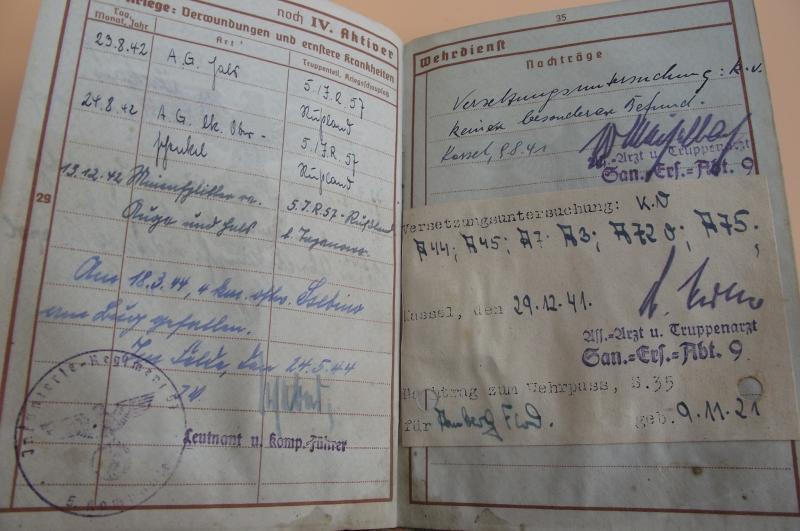 noch IV. Aktiver
Kriege: Verwundungen und ernstere Krankheiten
Tag, Monat, Jahr
Art
Truppenteil, Kriegsschauplatz
23.8.42 A.G. Hals 5./J.R. 57
Rußland
24.8.42 A.G. lk. Ober-
schenkel
5./J.R. 57
Rußland
13.12.42 Minensplitter re.
Auge und Hals
5. J.R. 57 - Rußland
29
Am 18.3.44, 4 km
am Bug gefallen.
Im Felde, den 24.5.44
Leutnant u. Komp.-Führer
Infanterie-Regiment
5. Kompanie
35
Wehrdienst
Nachträge
Versetzungsuntersuchung: k.v.
keinen besonderen Befund.
Kassel, 9.8.41
Ass.-Arzt u. Truppenarzt
San.-Ers.-Abt. 9
Versetzungsuntersuchung: K.V
A44; A45; A7; A3; A72 A75;
Kassel, den 29.12.41.
Ass.-Arzt u. Truppenarzt
San.-Ers.-Abt. 9
Nachtrag zum Wehrpass, S.35
für geb. 9.11.21